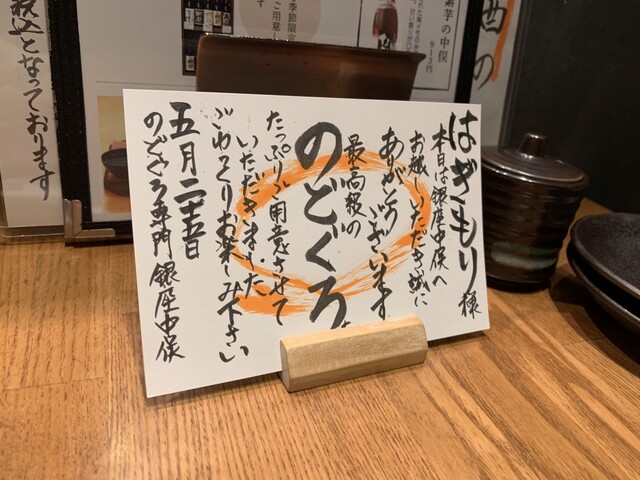 はぎもり様
本日は銀座中俣へ
お越しいただき誠に
ありがとうございます
最高級の
のどぐろを
たっぷりご用意させて
いただきました
ごゆっくりお楽しみ下さい
五月二十五日
のどぐろ専門 銀座中俣
税込となっております
季節限定
ご用意
紫芋の中俣
913円
酒の